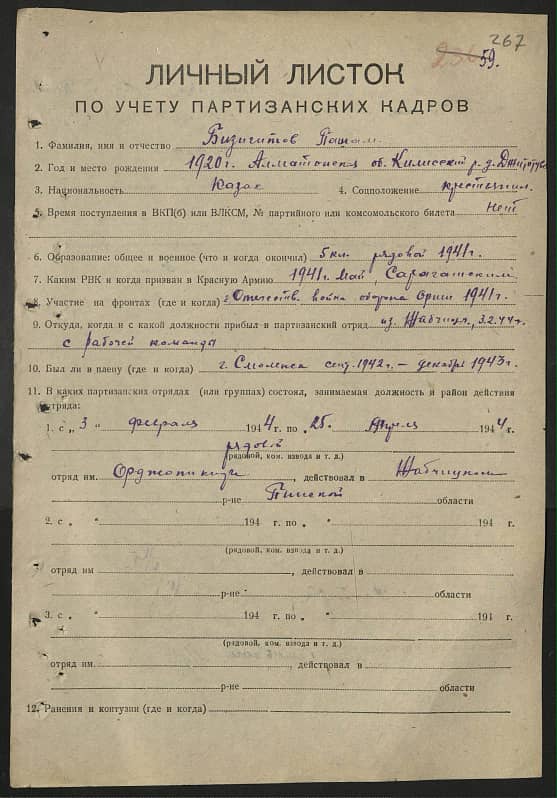 267
59.
ЛИЧНЫЙ ЛИСТОК
ПО УЧЕТУ ПАРТИЗАНСКИХ КАДРОВ
1. Фамилия, имя и отчество Бизигитов
2. Год и место рождения 1920г. Алматинская об. р.
3. Национальность Казах 4. Соцположение крестьянин.
5. Время поступления в ВКП(б) или ВЛКСМ, № партийного или комсомольского билета нет
6. Образование: общее и военное (что и когда окончил) 5 кл. рядовой 1941г.
7. Каким РВК и когда призван в Красную Армию 1941г. май,
8. Участие на фронтах (где и когда) Отечеств. война оборона 1941г.
9. Откуда, когда и с какой должности прибыл в партизанский отряд из 3.2.44г.
с рабочей команды
10. Был ли в плену (где и когда) г. Смоленск сент. 1942г. – декабря 1943г.
11. В каких партизанских отрядах (или группах) состоял, занимаемая должность и район действия
отряда:
1. с „ 3 " февраля 1944 г. по „ 25. апреля 1944 г.
рядовой
(рядовой, ком. взвода и т. д.)
отряд им. Орджоникидзе, действовал в Жабчицком
р-не Пинской области
2. с „ " 194 г. по „ " 194 г.
(рядовой, ком. взвода и т. д.)
отряд им , действовал в
р-не области
3. с „ " 194 г. по „ " 194 г.
(рядовой, ком. взвода и т. д.)
отряд им. , действовал в
р-не области
12. Ранения и контузии (где и когда)